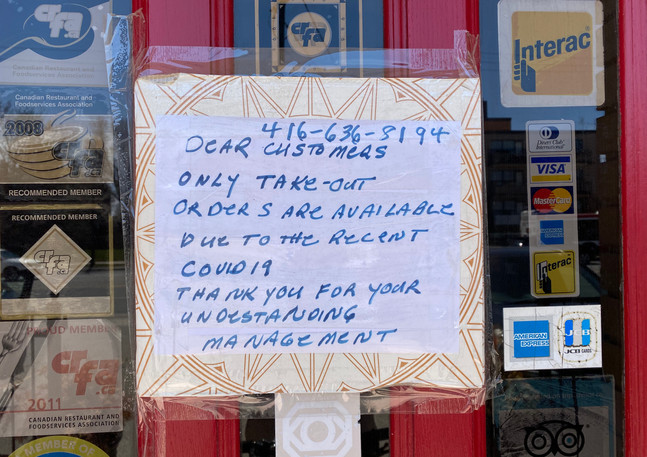 crfa
Canadian Restaurant and
Foodservices Association
2008
RECOMMENDED MEMBER
RECOMMENDED MEMBER
crfa
.ca
PROUD MEMBER
crfa
.ca
2011
CANADIAN RESTAURANT AND
FOODSERVICES ASSOCIATION
MEMBER OF
crfa
416-636-3194
DEAR CUSTOMERS
ONLY TAKE-OUT
ORDERS ARE AVAILABLE
DUE TO THE RECENT
COVID19
THANK YOU FOR YOUR
UNDESTANDING
MANAGEMENT
Interac
Diners Club
International
VISA
MasterCard
Interac
AMERICAN
EXPRESS
JCB
JCB CARDS